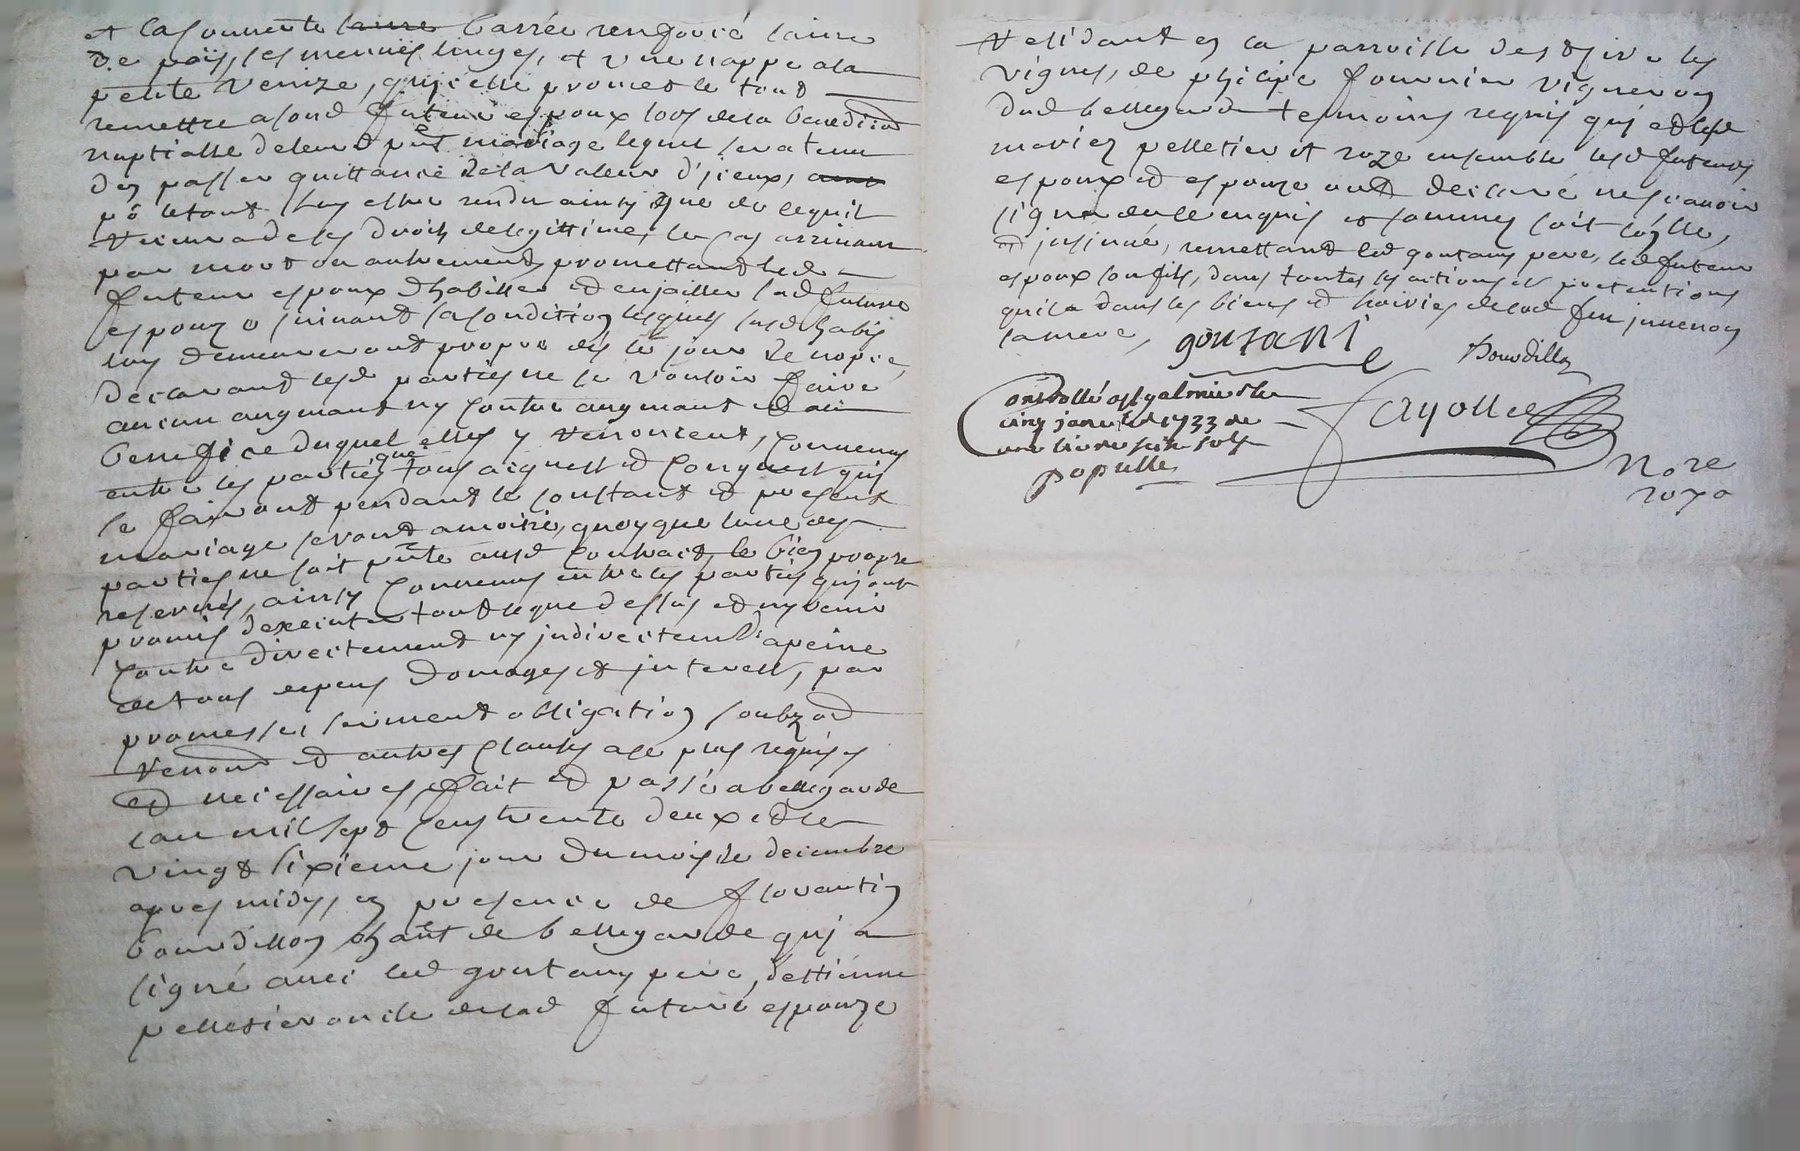 et la couverte laine barrée renforcé laine
de païs, ses menües linges, et une nappe a la
petite venize, qu'jcelle promet le tout
remettre a sond futeur espoux lors de la benedion
nuptialle de leurd pnt mariage lequel sera tenu
den passer quittance de la valeur d'jceux,
po le tout luy estre rendu ainsy que ce lequil
recevra de ses droits de legittime, le cas arrivant
par mort ou autrement, promettant led
futeur espoux d'habiller et enjailler lad future
espouze suivant sa condition lesquels susd habis
luy demeureront propre dès le jour de nopce,
declarant lesd parties ne se vouloir faire
aucun augmant ny contre augmant et au
benefice duquel elles y renoncent, convenu
entre les parties que tous acquest et conquest quj
se fairont pendant le constant et present
mariage seront a moitié, quoyque lune des
parties ne soit pnte ausd contract, le bien propre
reservés, ainsy convenus entre les parties quj ont
promis dexecuter tout le que dessus et ny venir
contre directement ny jndirectemt a peine
de tous depens domages et jnterests, par
promesses serment obligation soubz on
renon et autres clauses a ce plus requises
et necessaires, fait et passé a bellegarde
lan mil sept cens trente deux et le
vingt sixieme jour du mois de decembre
apres midy, en presence de florantin
bourdillon de bellegarde quj a
signé avec led goutany pere, d'estienne
pelletier oncle de lad future espouze
residant en la parroisse de st Sire les
vignes, de philipe fournier vigneron
dud bellegarde tesmoins requis quj et lesd
mariez pelletier et roze ensemble lesd futeurs
espoux et espouze ont declaré ne scavoir
signer de ce enquis et sommés soit conllé,
et jnsinué, remettant led goutany pere, led futeur
espoux son fils, dans toutes les actions et pretentions
quil a dans les biens et hoiries de lad feu juvenon
sa mere,
goutani
Bourdillon
Controllé a st galmier le
cinq janvier 1733 Re
une livre six sols
populle
fayolle
Nore
royo